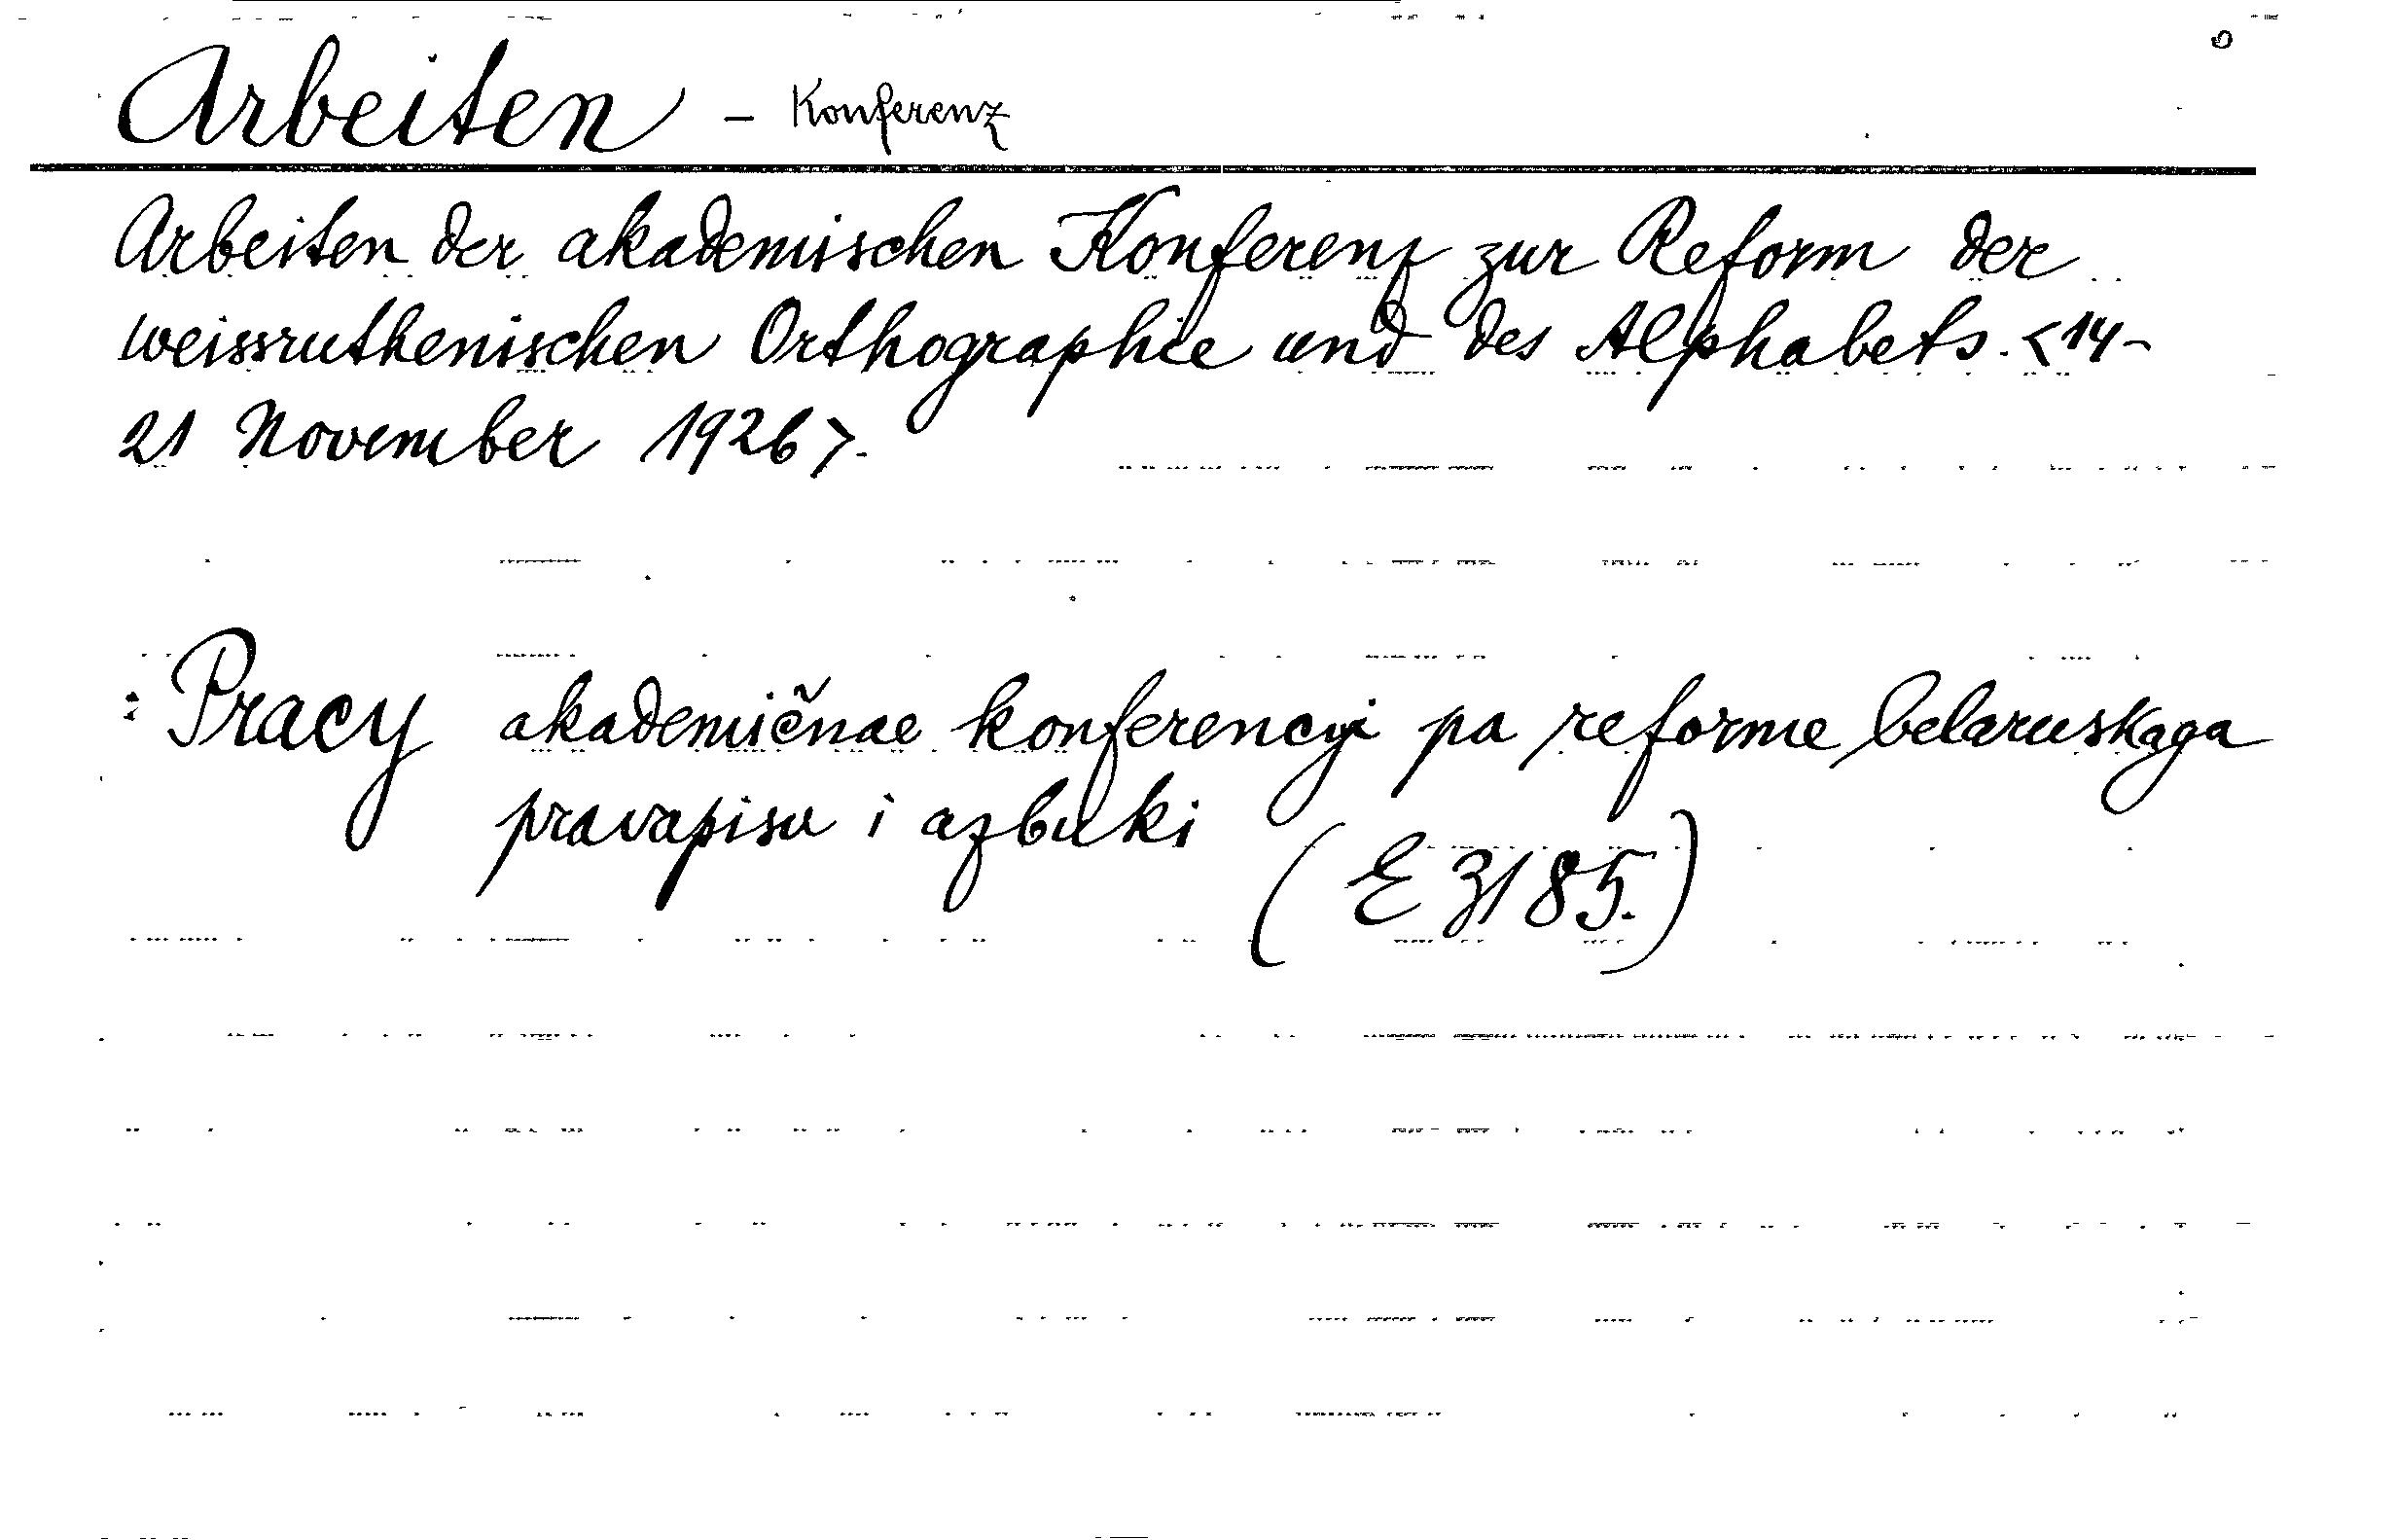 Arbeiten - Konferenz
Arbeiten der akademischen Konferenz zur Reform der
weissruthenischen Orthographie und des Alphabets. <14-
21 November 1926>.
: Pracy akademičnae konferencyi pa reforme belaruskaga
pravapisu i azbuki
(E 3185.)